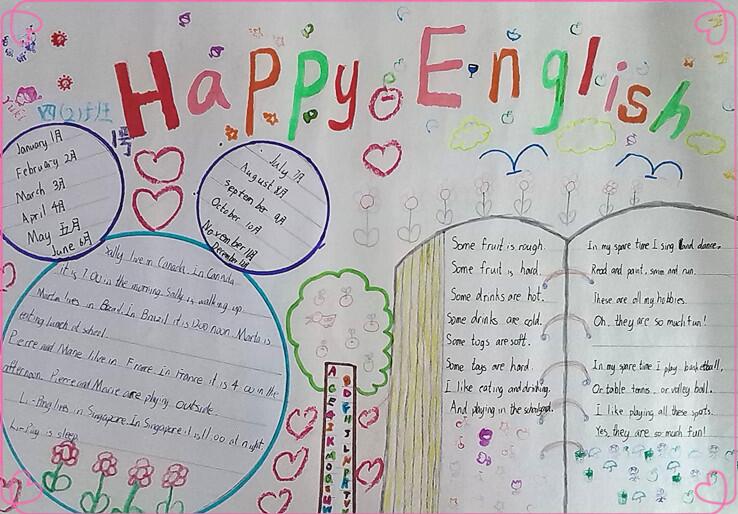 Happy English
四(2)班
January 1月
February 2月
March 3月
April 4月
May 五月
June 6月
July 7月
August 8月
September 9月
October 10月
November 11月
December 12月
Sally live in Canada. In Canada
it is 7.00 in the morning. Sally is walking up.
Marta lives in Brazil. In Brazil it is 1200 noon. Marta is
eating lunch at school.
Pierre and Marie live in France. In France it is 4:00 in the
afternoon. Pierre and Marie are playing outside.
Li-Ping lives in Singapore. In Singapore it is 11:00 at night.
Li-Ping is sleep
Some fruit is rough.
Some fruit is hard.
Some drinks are hot.
Some drinks are cold.
Some togs are soft.
Some toys are hard.
I like eating and drinking.
And playing in the schoolyard.
In my spare time I sing and dance.
Read and paint, swim and run.
These are all my hobbies.
Oh, they are so much fun!
In my spare time I play basketball,
Or table tennis, or valley ball.
I like playing all these sports.
Yes, they are so much fun!